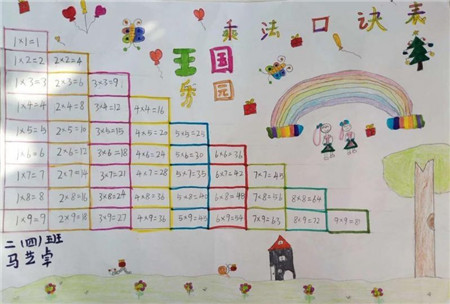 乘法口诀表
王国
乐园
1×1=1
1×2=2 2×2=4
1×3=3 2×3=6 3×3=9
1×4=4 2×4=8 3×4=12 4×4=16
1×5=5 2×5=10 3×5=15 4×5=20 5×5=25
1×6=6 2×6=12 3×6=18 4×6=24 5×6=30 6×6=36
1×7=7 2×7=14 3×7=21 4×7=28 5×7=35 6×7=42 7×7=49
1×8=8 2×8=16 3×8=24 4×8=32 5×8=40 6×8=48 7×8=56 8×8=64
1×9=9 2×9=18 3×9=27 4×9=36 5×9=45 6×9=54 7×9=63 8×9=72 9×9=81
二(四)班
马芝卓